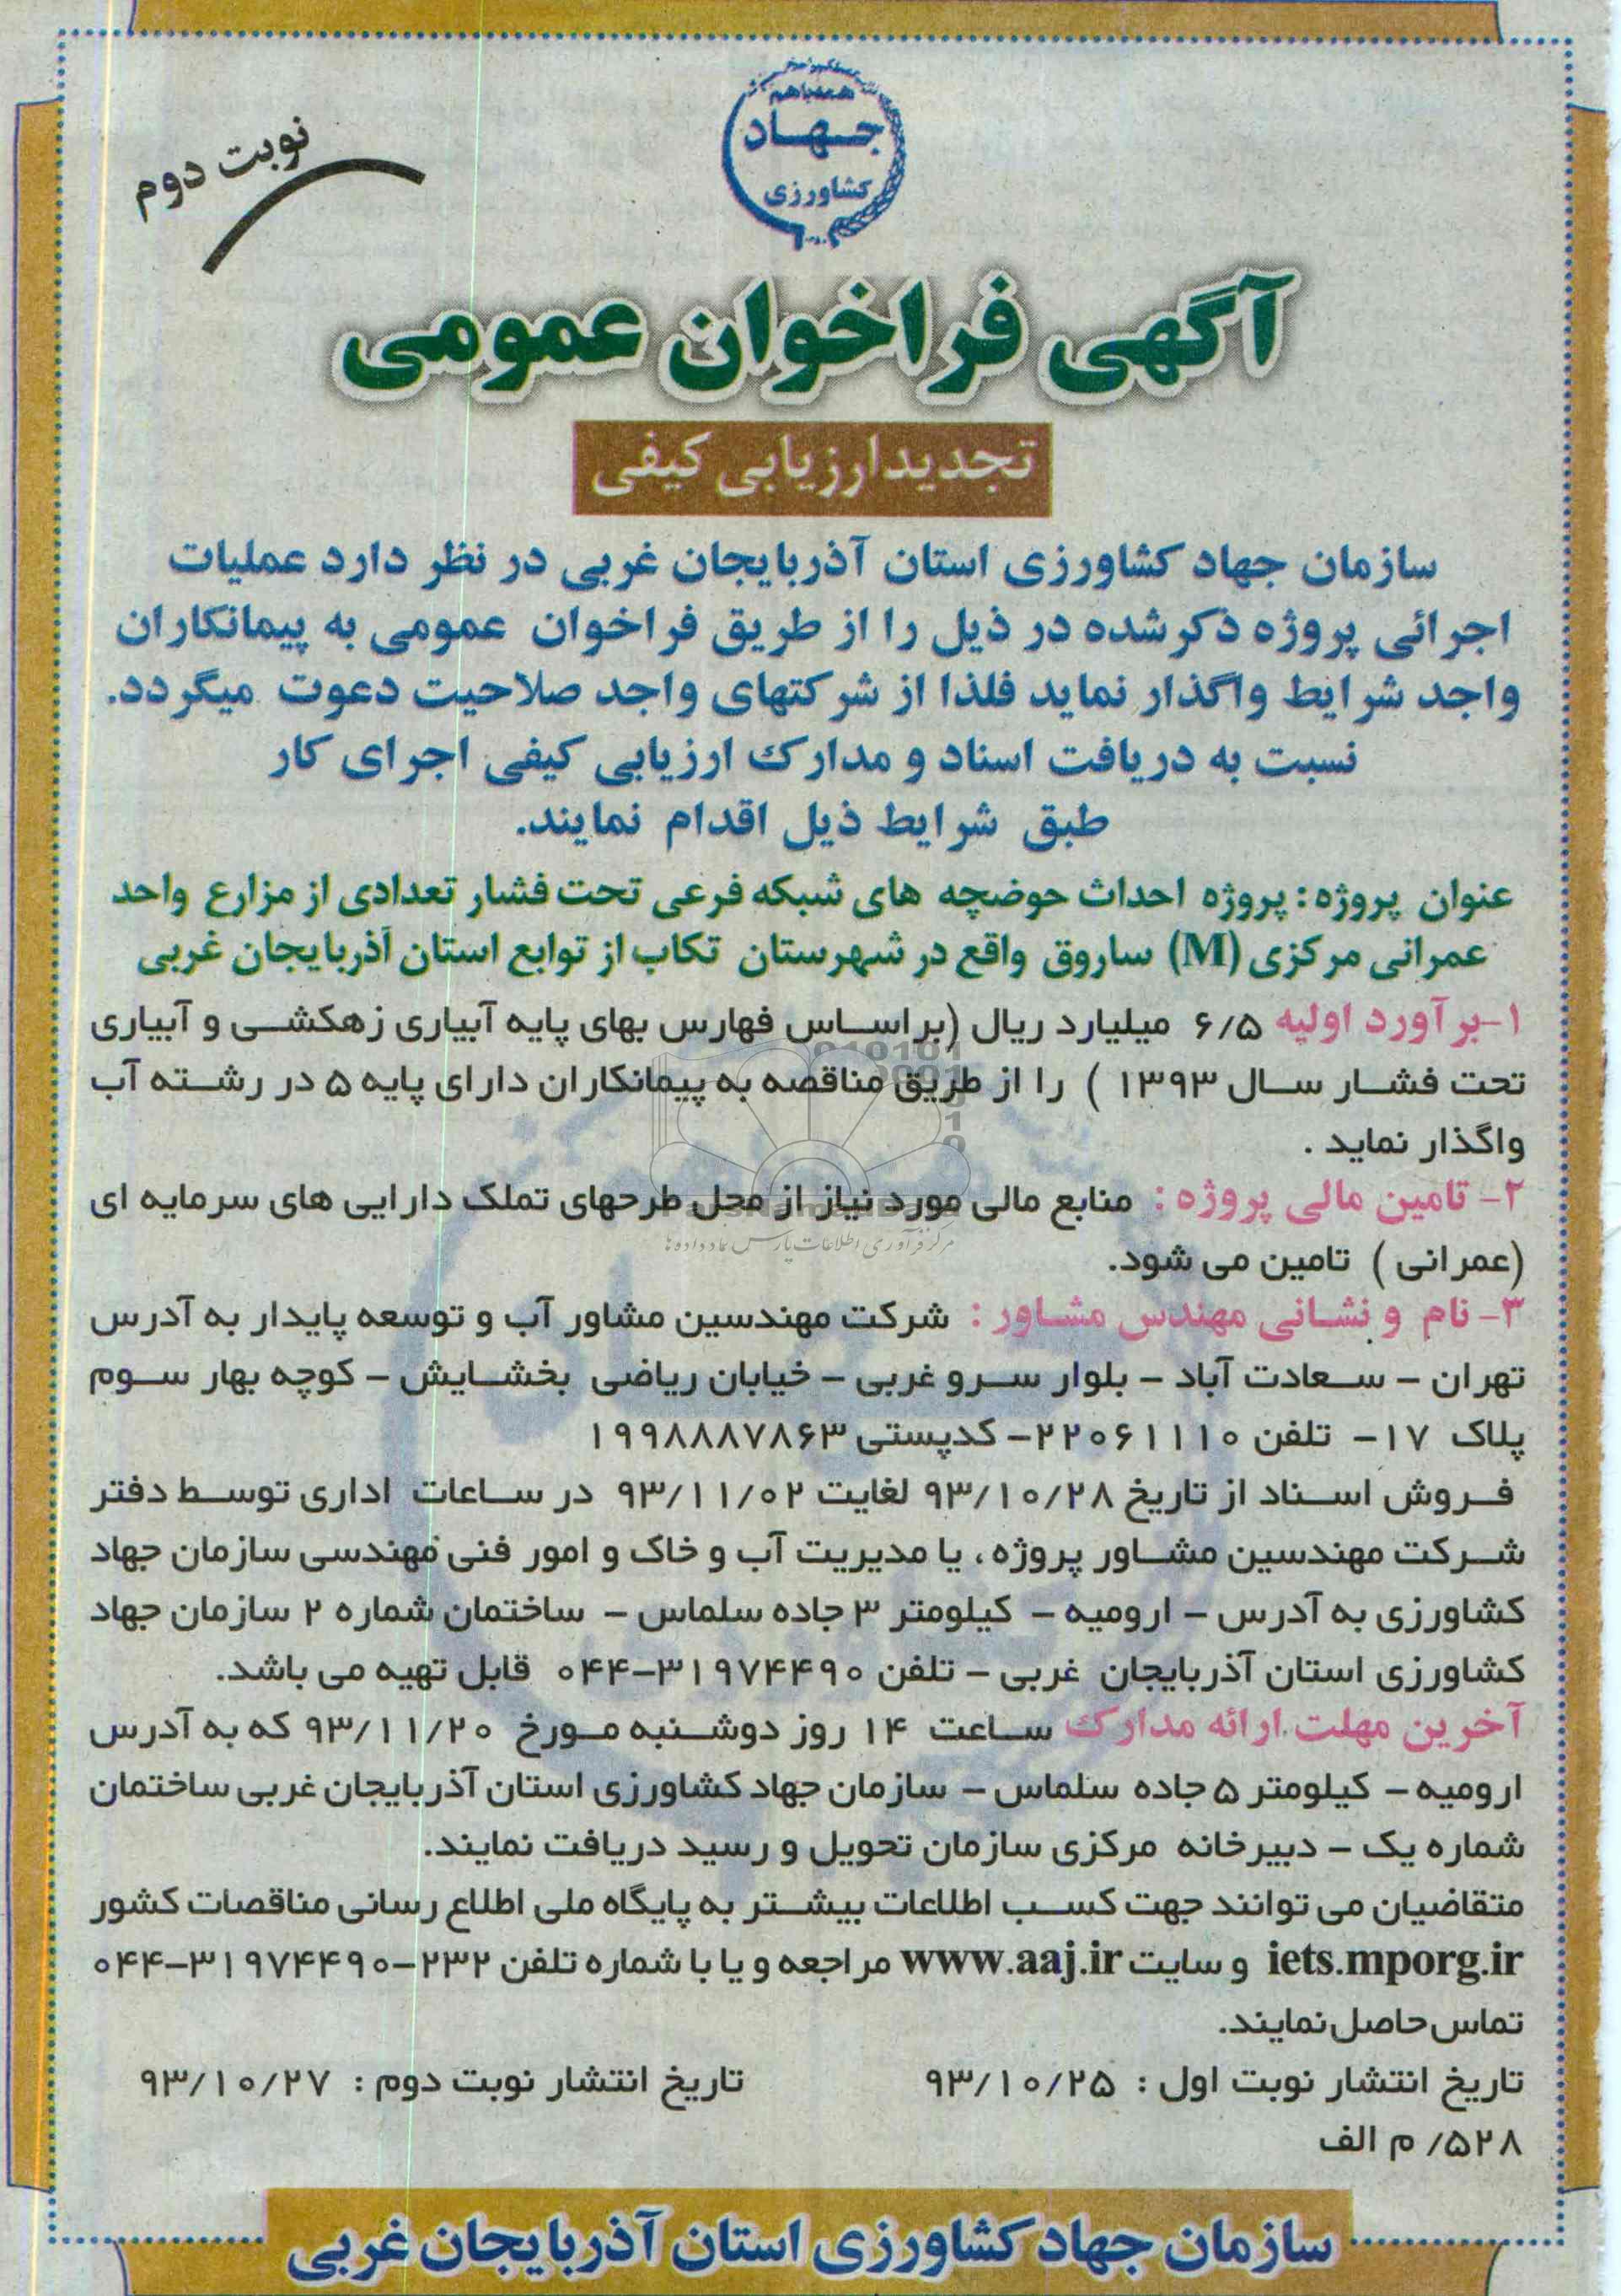 همه با هم
جهاد
کشاورزی
نوبت دوم
آگهی فراخوان عمومی
تجدیدارزیابی کیفی
سازمان جهاد کشاورزی استان آذربایجان غربی در نظر دارد عملیات
اجرائی پروژه ذکرشده در ذیل را از طریق فراخوان عمومی به پیمانکاران
واجد شرایط واگذار نماید فلذا از شرکتهای واجد صلاحیت دعوت میگردد.
نسبت به دریافت اسناد و مدارک ارزیابی کیفی اجرای کار
طبق شرایط ذیل اقدام نمایند.
عنوان پروژه: پروژه احداث حوضچه های شبکه فرعی تحت فشار تعدادی از مزارع واحد
عمرانی مرکزی (M) ساروق واقع در شهرستان تکاب از توابع استان آذربایجان غربی
۱-برآورد اولیه ۶/۵ میلیارد ریال (براساس فهارس بهای پایه آبیاری زهکشی و آبیاری
تحت فشار سال ۱۳۹۳ ) را از طریق مناقصه به پیمانکاران دارای پایه ۵ در رشته آب
واگذار نماید .
۲- تامین مالی پروژه : منابع مالی مورد نیاز از محل طرحهای تملک دارایی های سرمایه ای
مرکز فرآوری اطلاعات پارس نماد داده ها
(عمرانی ) تامین می شود.
۳- نام و نشانی مهندس مشاور : شرکت مهندسین مشاور آب و توسعه پایدار به آدرس
تهران - سعادت آباد - بلوار سرو غربی - خیابان ریاضی بخشایش - کوچه بهار سوم
پلاک ۱۷- تلفن ۲۲۰۶۱۱۱۰- کدپستی ۱۹۹۸۸۸۷۸۶۳
فروش اسناد از تاریخ ۹۳/۱۰/۲۸ لغایت ۹۳/۱۱/۰۲ در ساعات اداری توسط دفتر
شرکت مهندسین مشاور پروژه ، یا مدیریت آب و خاک و امور فنی مهندسی سازمان جهاد
کشاورزی به آدرس - ارومیه - کیلومتر ۳ جاده سلماس - ساختمان شماره ۲ سازمان جهاد
کشاورزی استان آذربایجان غربی - تلفن ۳۱۹۷۴۴۹۰-۰۴۴ قابل تهیه می باشد.
آخرین مهلت ارائه مدارک ساعت ۱۴ روز دوشنبه مورخ ۹۳/۱۱/۲۰ که به آدرس
ارومیه - کیلومتر ۵ جاده سلماس - سازمان جهاد کشاورزی استان آذربایجان غربی ساختمان
شماره یک - دبیرخانه مرکزی سازمان تحویل و رسید دریافت نمایند.
متقاضیان می توانند جهت کسب اطلاعات بیشتر به پایگاه ملی اطلاع رسانی مناقصات کشور
iets.mporg.ir و سایت www.aaj.ir مراجعه و یا با شماره تلفن ۲۳۲-۳۱۹۷۴۴۹۰-۰۴۴
تماس حاصل نمایند.
تاریخ انتشار نوبت اول : ۹۳/۱۰/۲۵ تاریخ انتشار نوبت دوم : ۹۳/۱۰/۲۷
۵۲۸/ م الف
سازمان جهاد کشاورزی استان آذربایجان غربی